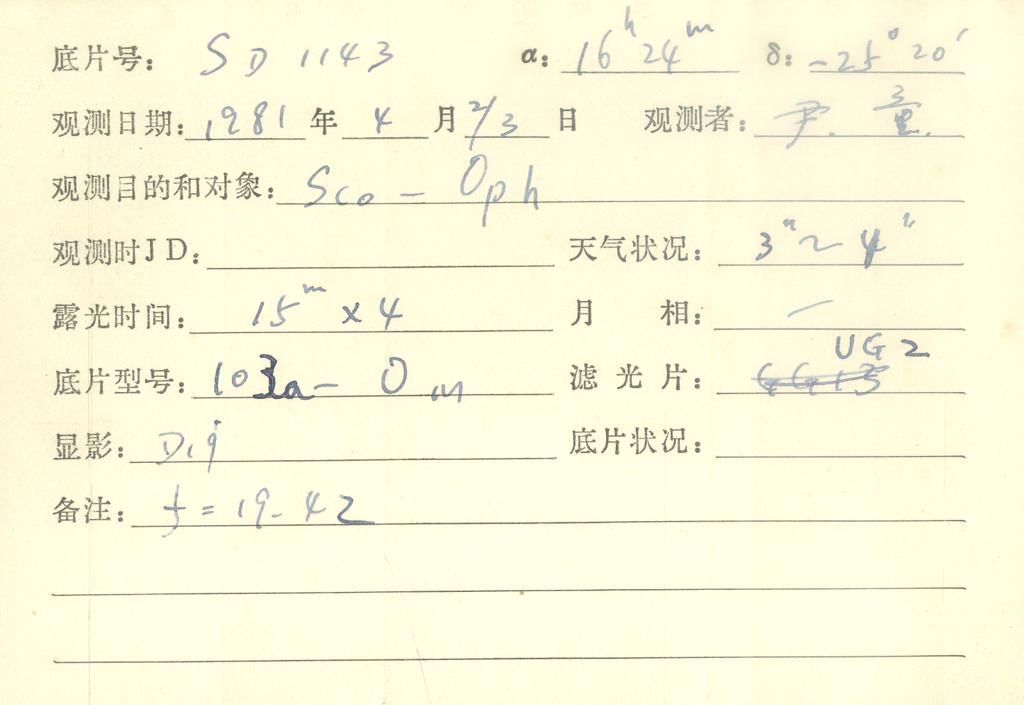 底片号: SD 1143 α: 16h 24m δ: -25° 20′
观测日期: 1981 年 4 月 2/3 日 观测者: 尹. 童.
观测目的和对象: Sco — Oph
观测时JD: 天气状况: 3"~4"
露光时间: 15m × 4 月 相: —
底片型号: 103a-O 滤光片: GG13 UG2
显影: 底片状况:
备注: f = 19.42